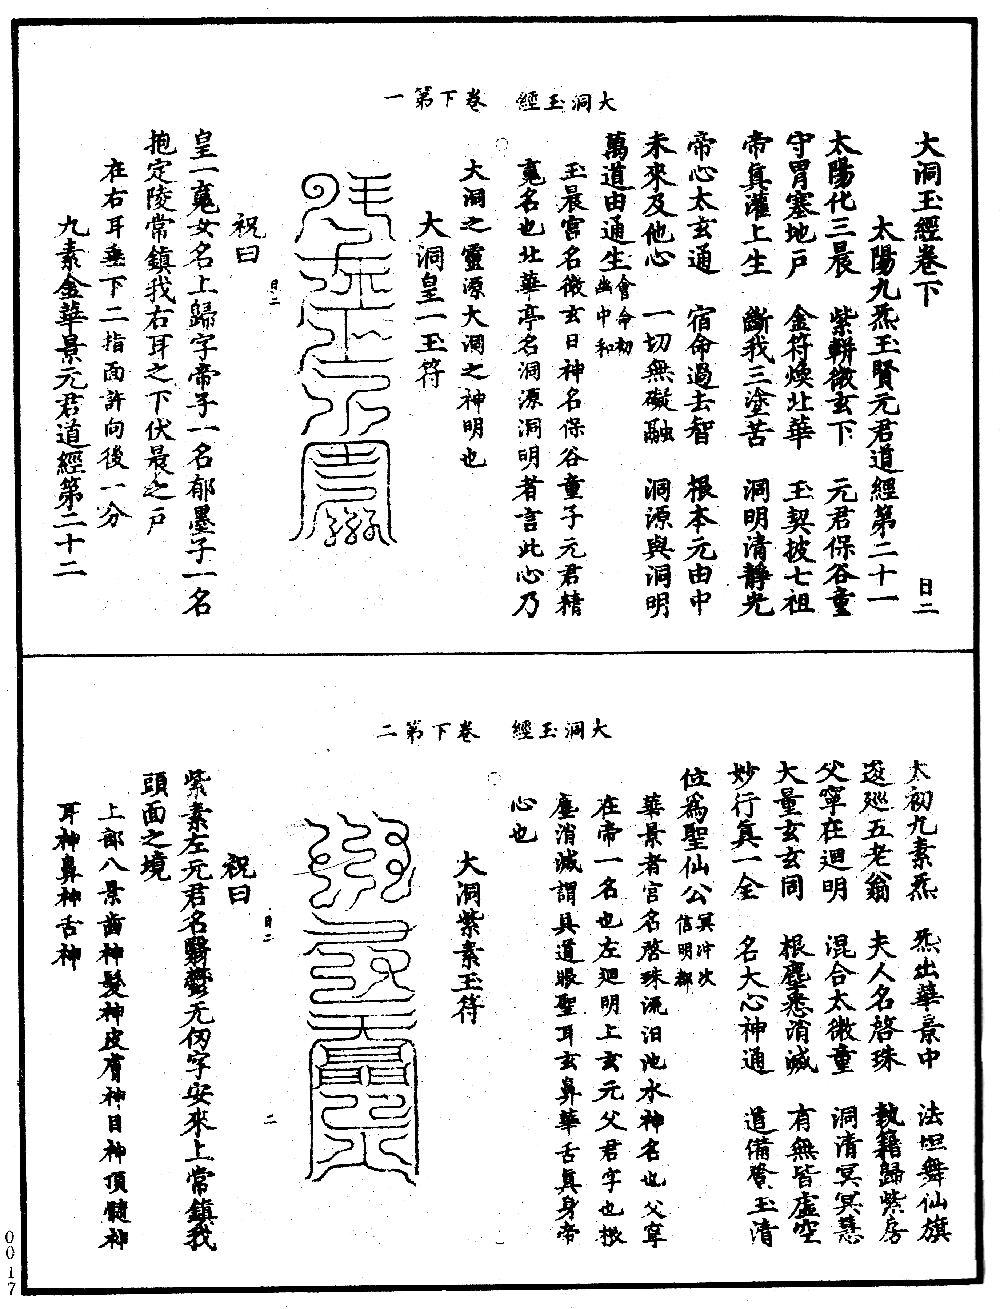 大洞玉經 卷下第一
大洞玉經卷下 日二
太陽九炁玉賢元君道經第二十一
太陽化三晨 紫軿微玄下 元君保谷童
守胃塞地戶 金符煥北華 玉契披七祖
帝真灌上生 斷我三塗苦 洞明清靜光
帝心太玄通 宿命過去智 根本元由中
未來及他心 一切無礙融 洞源與洞明
萬道由通生 會命初幽中和
玉晨宮名微玄日神名保谷童子元君精
寃名也北華亭名洞源洞明者言此心乃
大洞之靈源大洞之神明也
大洞皇一玉符
日二
祝曰
皇一寃女名上歸字帝子一名郁墨子一名
抱定陵常鎮我右耳之下伏晨之戶
在右耳垂下二指面許向後一分
九素金華景元君道經第二十二
大洞玉經 卷下第二
太初九素炁 炁出華景中 法坦舞仙旗
逡廵五老翁 夫人名啓珠 執籍歸紫房
父寧在迴明 混合太微童 洞清冥冥慧
大量玄玄同 根塵悉消滅 有無皆虛空
妙行真一全 名大心神通 道備登玉清
位為聖仙公 冥沖次信明鄰
華景者宮名啓珠流汨池水神名也父寧
在帝一名也左迴明上玄元父君字也根
塵消滅謂具道眼聖耳玄鼻華舌真身帝
心也
大洞紫素玉符
日二
二
祝曰
紫素左元君名翳鬱无仞字安來上常鎮我
頭面之境
上部八景齒神髮神皮膚神目神頂髓神
耳神鼻神舌神
0017